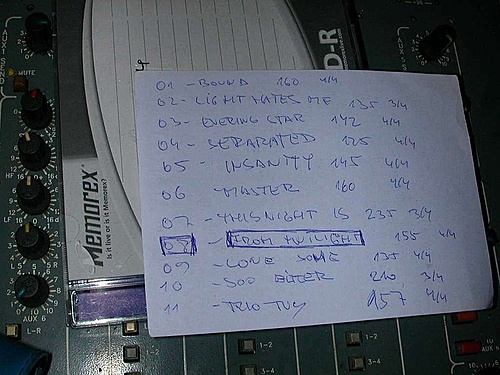 01 - BOUND 160 4/4
02 - LIGHT HATES ME 135 3/4
03 - EVERING STAR 142 4/4
04 - SEPARATED 125 4/4
05 - INSANITY 145 4/4
06 - MASTER 160 4/4
07 - THIS NIGHT IS 235 3/4
08 - FROM TWILIGHT 155 4/4
09 - LONE SOME 135 4/4
10 - SOO BITER 210 3/4
11 - TRIO TUY 157 4/4
Memorex
Is it live or is it Memorex?
D-R
MUTE
HF
LF
AUX 6
L-R
1-2
3-4
1-2
3-4